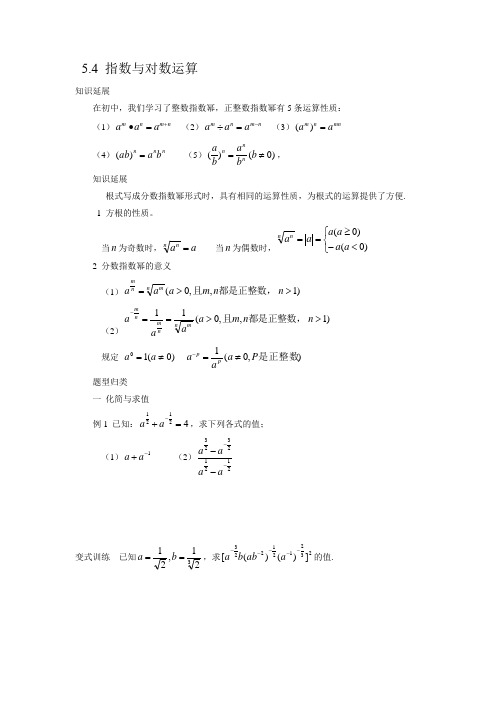 5.4 指数与对数运算
知识延展
在初中，我们学习了整数指数幂，正整数指数幂有5条运算性质：
（1）$a^m \bullet a^n = a^{m+n}$ （2）$a^m \div a^n = a^{m-n}$ （3）$(a^m)^n = a^{mn}$
（4）$(ab)^n = a^n b^n$ （5）$(\frac{a}{b})^n = \frac{a^n}{b^n}(b \neq 0)$，
知识延展
根式写成分数指数幂形式时，具有相同的运算性质，为根式的运算提供了方便.
1 方根的性质。
当$n$为奇数时，$\sqrt[n]{a^n} = a$ 当$n$为偶数时，$\sqrt[n]{a^n} = |a| = \begin{cases} a(a \geq 0) \\ -a(a < 0) \end{cases}$
2 分数指数幂的意义
（1）$a^{\frac{m}{n}} = \sqrt[n]{a^m}(a > 0, 且m, n都是正整数，n > 1)$
（2）$a^{-\frac{m}{n}} = \frac{1}{a^{\frac{m}{n}}} = \frac{1}{\sqrt[n]{a^m}}(a > 0, 且m, n都是正整数，n > 1)$
规定 $a^0 = 1(a \neq 0)$ $a^{-p} = \frac{1}{a^p}(a \neq 0, P是正整数)$
题型归类
一 化简与求值
例1 已知：$a^{\frac{1}{2}} + a^{-\frac{1}{2}} = 4$，求下列各式的值；
（1）$a + a^{-1}$ （2）$\frac{a^{\frac{3}{2}} - a^{-\frac{3}{2}}}{a^{\frac{1}{2}} - a^{-\frac{1}{2}}}$
变式训练 已知$a = \frac{1}{\sqrt{2}}, b = \frac{1}{\sqrt[3]{2}}$，求$[a^{-\frac{3}{2}}b(ab^{-2})^{-\frac{1}{2}}(a^{-1})^{-\frac{2}{3}}]^2$的值.